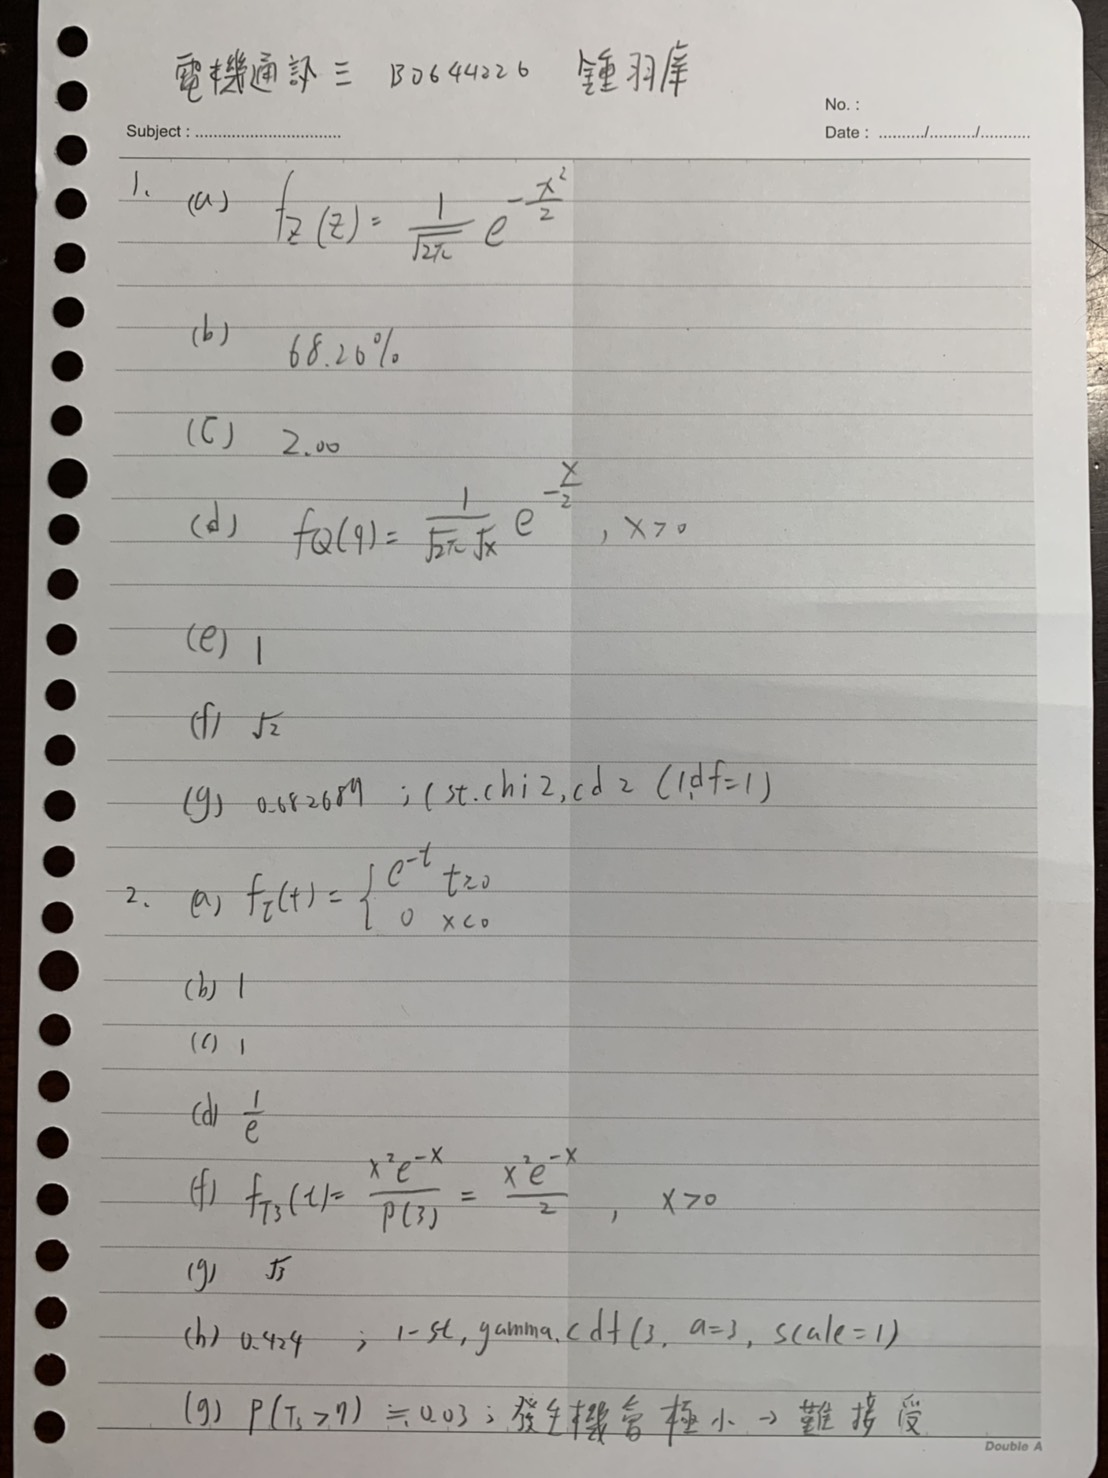 電機通訊三 B0644226 鍾羽庠
No. :
Subject : ................................ Date : ........../........../...........
1. (a) f_Z(z) = \frac{1}{\sqrt{2\pi}} e^{-\frac{x^2}{2}}
(b) 68.26%
(C) 2.00
(d) f_Q(q) = \frac{1}{\sqrt{2\pi}\sqrt{x}} e^{-\frac{x}{2}} , x>0
(e) 1
(f) √2
(g) 0.682689 ; ( st.chi2,cd2 (1,df=1)
2. (a) f_τ(t) = { e^{-t} t≥0
0 x<0
(b) 1
(c) 1
(d) \frac{1}{e}
(f) f_{T3}(t) = \frac{x^2e^{-x}}{P(3)} = \frac{x^2e^{-x}}{2} , x>0
(g) √3
(h) 0.424 ; 1-st, gamma.cdf(3, a=3, scale=1)
(g) P(T_3>7) ≒0.03 ; 發生機會極小→難接受
Double A